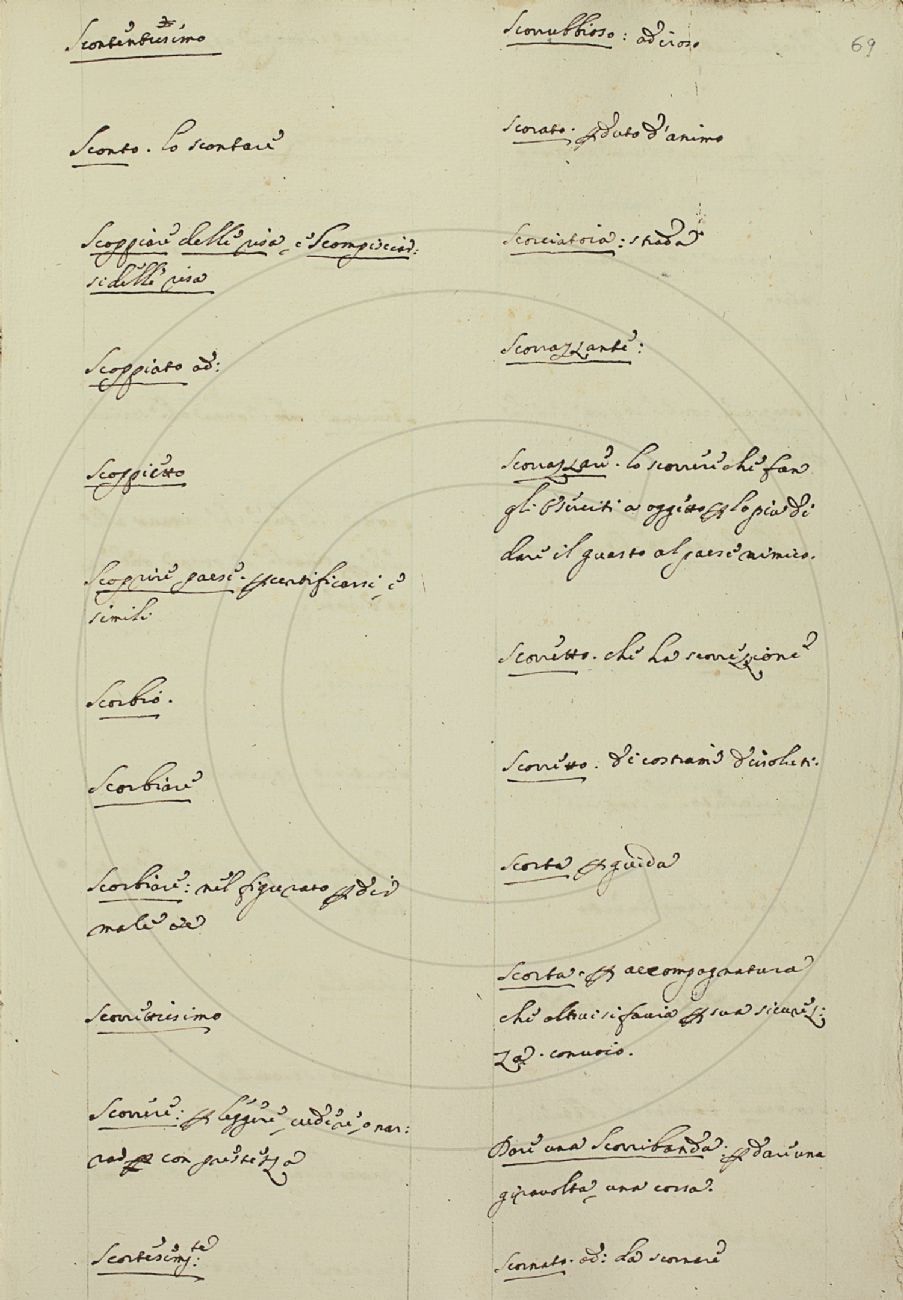 69
Scontentissimo
Sconto. lo scontare
Scoppiare delle risa, e Scompisciar:
si delle risa
Scoppiato ad:
Scoppietto
Scoprire paese. ꝑ certificarsi, e
simili
Scorbio.
Scorbiare
Scorbiare: nel figurato ꝑ dir
male
Scorrettissimo
Scorrere: ꝑ leggere, vedere, o nar:
rare con prestezza
Scortesism:te
Scorrubbioso: adiroso
Scorato. ꝑduto d'animo
Scorciatoia: strada
Scorrazzante:
Scorrazzare. lo scorrere che fan
gli Eserciti a oggetto ꝑ lo piu di
dare il guasto al paese nimico.
Scorretto. che ha scorrezzione
Scorretto. di costumi dissoluti.
Scorta ꝑ guida
Scorta. ꝑ accompagnatura
che altrui si faccia ꝑ sua sicurez:
za. convoio.
Dare una Scorribanda: ꝑ dare una
giravolta, una corsa.
Scornato. ad: da scornare